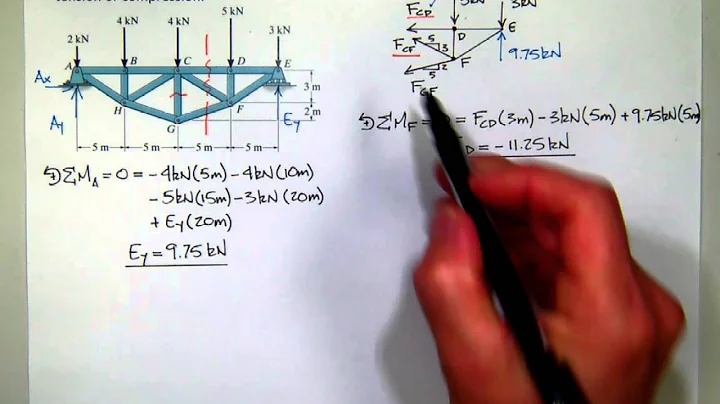 tension or compression.
5 kN
4 kN 4 kN
3 kN
2 kN
A B C D E
Ax
3 m
H F
2 m
G
Ay Ey
5 m 5 m 5 m 5 m
ΣM_A = 0 = -4kN(5m) - 4kN(10m)
- 5kN(15m) - 3kN(20m)
+ Ey(20m)
Ey = 9.75 kN
F_CD 5kN 3kN
D E
F_CF 5 3
9.75kN
F
5 2
F_GF
ΣM_F = 0 = F_CD(3m) - 3kN(5m) + 9.75kN(5m)
= -11.25kN